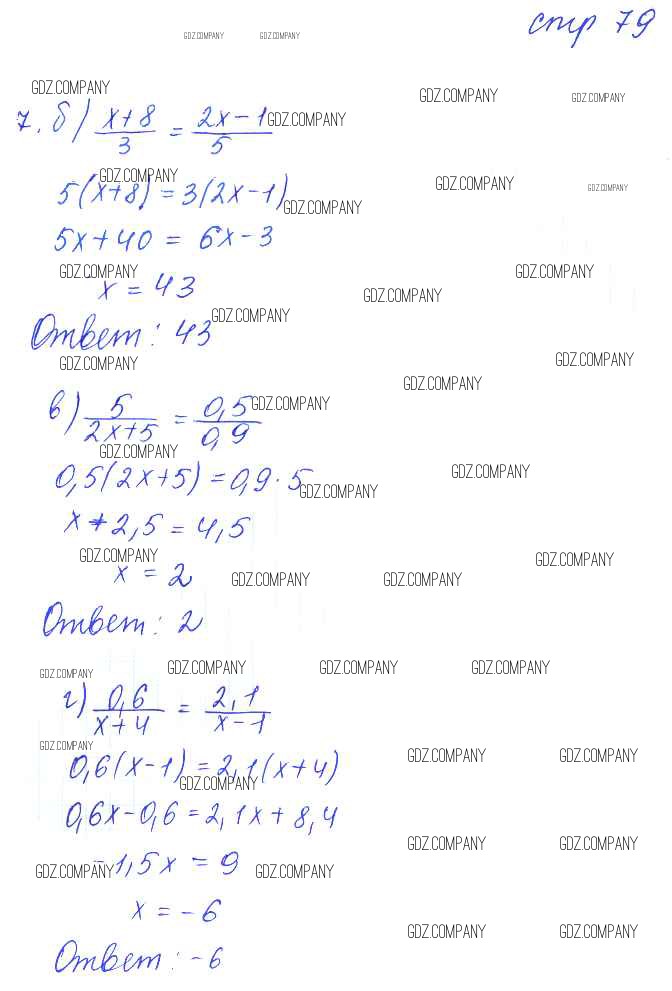 стр 79
GDZ.COMPANY GDZ.COMPANY
GDZ.COMPANY GDZ.COMPANY GDZ.COMPANY
7. б) x+8/3 = 2x-1/5 GDZ.COMPANY
GDZ.COMPANY GDZ.COMPANY GDZ.COMPANY
5(x+8) = 3(2x-1) GDZ.COMPANY
5x+40 = 6x-3
GDZ.COMPANY GDZ.COMPANY
x = 43 GDZ.COMPANY
Ответ: 43 GDZ.COMPANY
GDZ.COMPANY GDZ.COMPANY
GDZ.COMPANY
в) 5/2x+5 = 0,5/0,9 GDZ.COMPANY
GDZ.COMPANY GDZ.COMPANY
0,5(2x+5) = 0,9·5 GDZ.COMPANY
x+2,5 = 4,5
GDZ.COMPANY GDZ.COMPANY
x = 2 GDZ.COMPANY GDZ.COMPANY
Ответ: 2
GDZ.COMPANY GDZ.COMPANY GDZ.COMPANY GDZ.COMPANY
г) 0,6/x+4 = 2,1/x-1
GDZ.COMPANY GDZ.COMPANY GDZ.COMPANY
0,6(x-1) = 2,1(x+4)
GDZ.COMPANY
0,6x-0,6 = 2,1x+8,4
GDZ.COMPANY GDZ.COMPANY
GDZ.COMPANY -1,5x = 9 GDZ.COMPANY
x = -6
GDZ.COMPANY GDZ.COMPANY
Ответ: -6